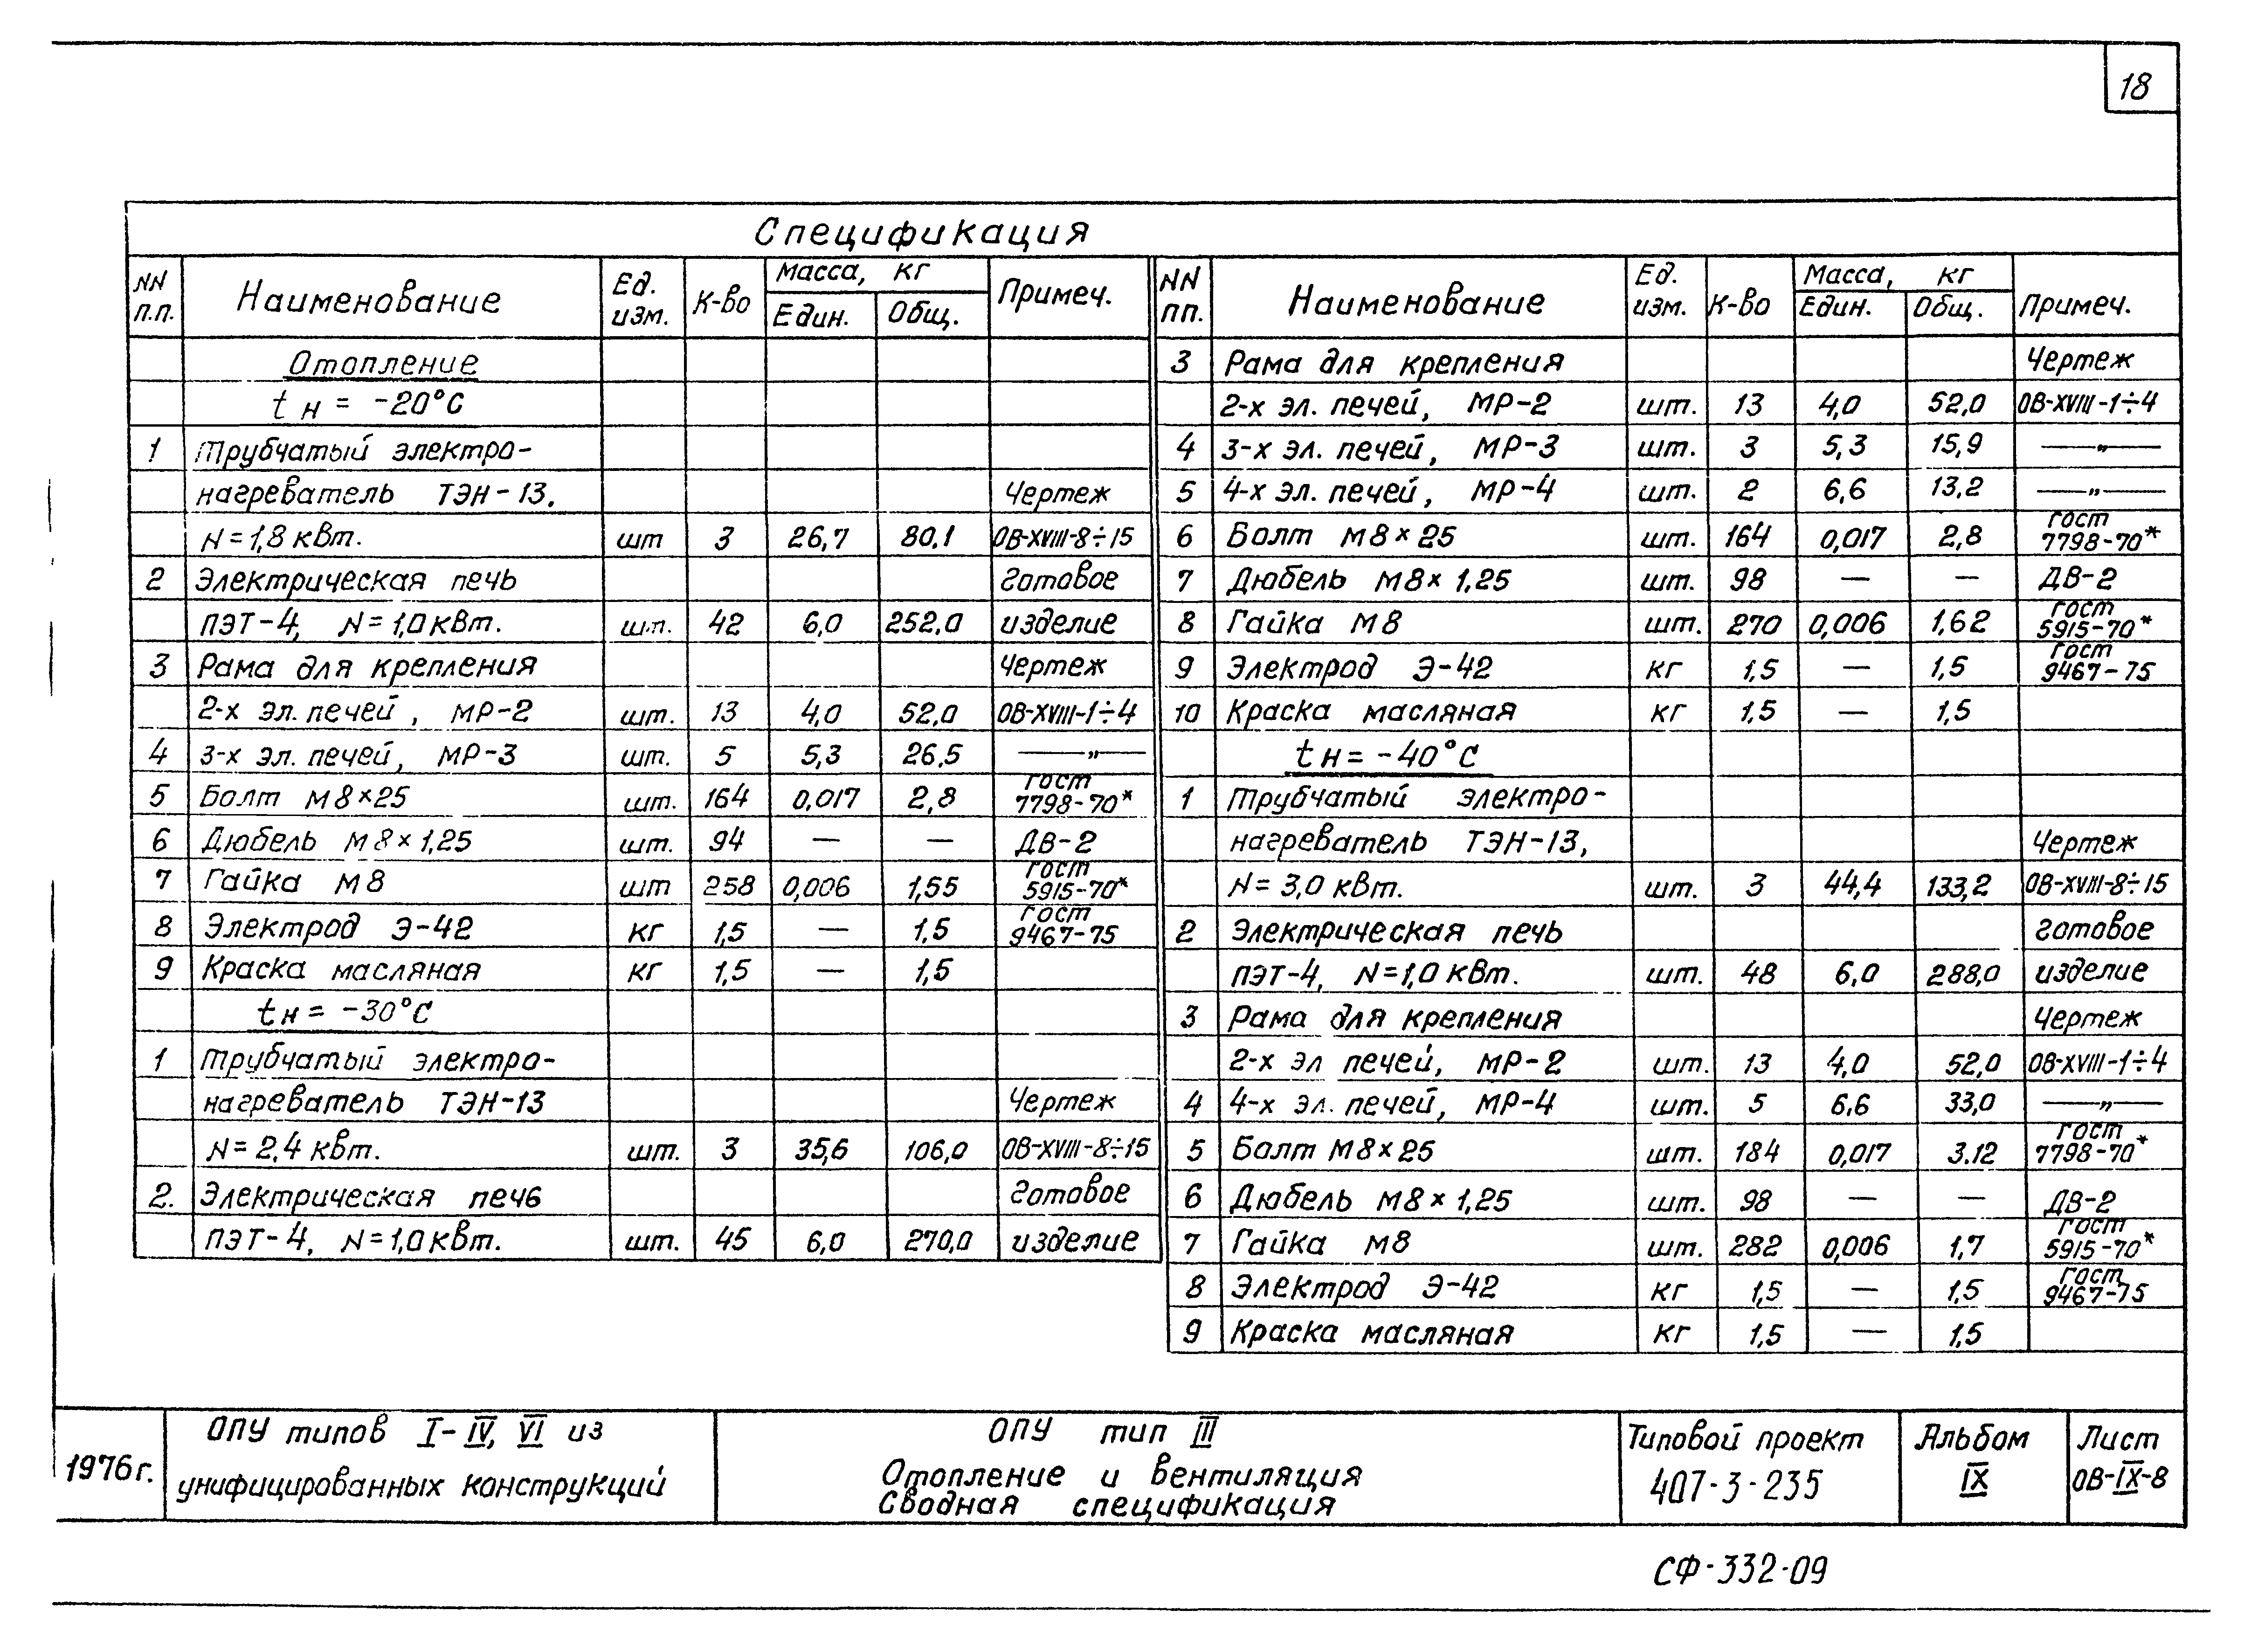 18
Спецификация
NN п.п. Наименование Ед. изм. К-во Масса, кг Един. Общ. Примеч.
Отопление
tн = -20°С
1 Трубчатый электро-
нагреватель ТЭН-13. Чертеж
N=1,8 квт. шт 3 26,7 80,1 ОВ-XVIII-8÷15
2 Электрическая печь готовое
ПЭТ-4, N=1,0 квт. шт. 42 6,0 252,0 изделие
3 Рама для крепления Чертеж
2-х эл. печей, МР-2 шт. 13 4,0 52,0 ОВ-XVIII-1÷4
4 3-х эл. печей, МР-3 шт. 5 5,3 26,5 —„—
5 Болт М8×25 шт. 164 0,017 2,8 ГОСТ 7798-70*
6 Дюбель М8×1,25 шт. 94 — — ДВ-2
7 Гайка М8 шт 258 0,006 1,55 ГОСТ 5915-70*
8 Электрод Э-42 кг 1,5 — 1,5 ГОСТ 9467-75
9 Краска масляная кг 1,5 — 1,5
tн = -30°С
1 Трубчатый электро-
нагреватель ТЭН-13 Чертеж
N=2,4 квт. шт. 3 35,6 106,0 ОВ-XVIII-8÷15
2. Электрическая печь готовое
ПЭТ-4, N=1,0 квт. шт. 45 6,0 270,0 изделие
NN пп. Наименование Ед. изм. К-во Масса, кг Един. Общ. Примеч.
3 Рама для крепления Чертеж
2-х эл. печей, МР-2 шт. 13 4,0 52,0 ОВ-XVIII-1÷4
4 3-х эл. печей, МР-3 шт. 3 5,3 15,9 —„—
5 4-х эл. печей, МР-4 шт. 2 6,6 13,2 —„—
6 Болт М8×25 шт. 164 0,017 2,8 ГОСТ 7798-70*
7 Дюбель М8×1,25 шт. 98 — — ДВ-2
8 Гайка М8 шт. 270 0,006 1,62 ГОСТ 5915-70*
9 Электрод Э-42 кг 1,5 — 1,5 ГОСТ 9467-75
10 Краска масляная кг 1,5 — 1,5
tн = -40°С
1 Трубчатый электро-
нагреватель ТЭН-13, Чертеж
N= 3,0 квт. шт. 3 44,4 133,2 ОВ-XVIII-8÷15
2 Электрическая печь готовое
ПЭТ-4, N=1,0 квт. шт. 48 6,0 288,0 изделие
3 Рама для крепления Чертеж
2-х эл печей, МР-2 шт. 13 4,0 52,0 ОВ-XVIII-1÷4
4 4-х эл. печей, МР-4 шт. 5 6,6 33,0 —„—
5 Болт М8×25 шт. 184 0,017 3.12 ГОСТ 7798-70*
6 Дюбель М8×1,25 шт. 98 — — ДВ-2
7 Гайка М8 шт. 282 0,006 1,7 ГОСТ 5915-70*
8 Электрод Э-42 кг 1,5 — 1,5 ГОСТ 9467-75
9 Краска масляная кг 1,5 — 1,5
1976г.
ОПУ типов I-IV, VI из
унифицированных конструкций
ОПУ тип III
Отопление и вентиляция
Сводная спецификация
Типовой проект
407-3-235
Альбом
IX
Лист
ОВ-IX-8
СФ-332-09